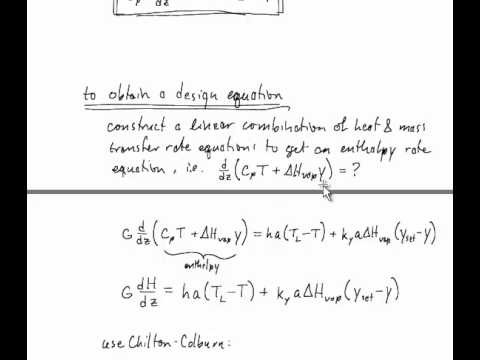 to obtain a design equation
construct a linear combination of heat & mass
transfer rate equations to get an enthalpy rate
equation, i.e. d/dz (CpT + ΔHvap y) = ?
G d/dz (CpT + ΔHvap y) = ha(TL-T) + kyaΔHvap(ysat-y)
enthalpy
G dH/dz = ha(TL-T) + kyaΔHvap(ysat-y)
use Chilton-Colburn: